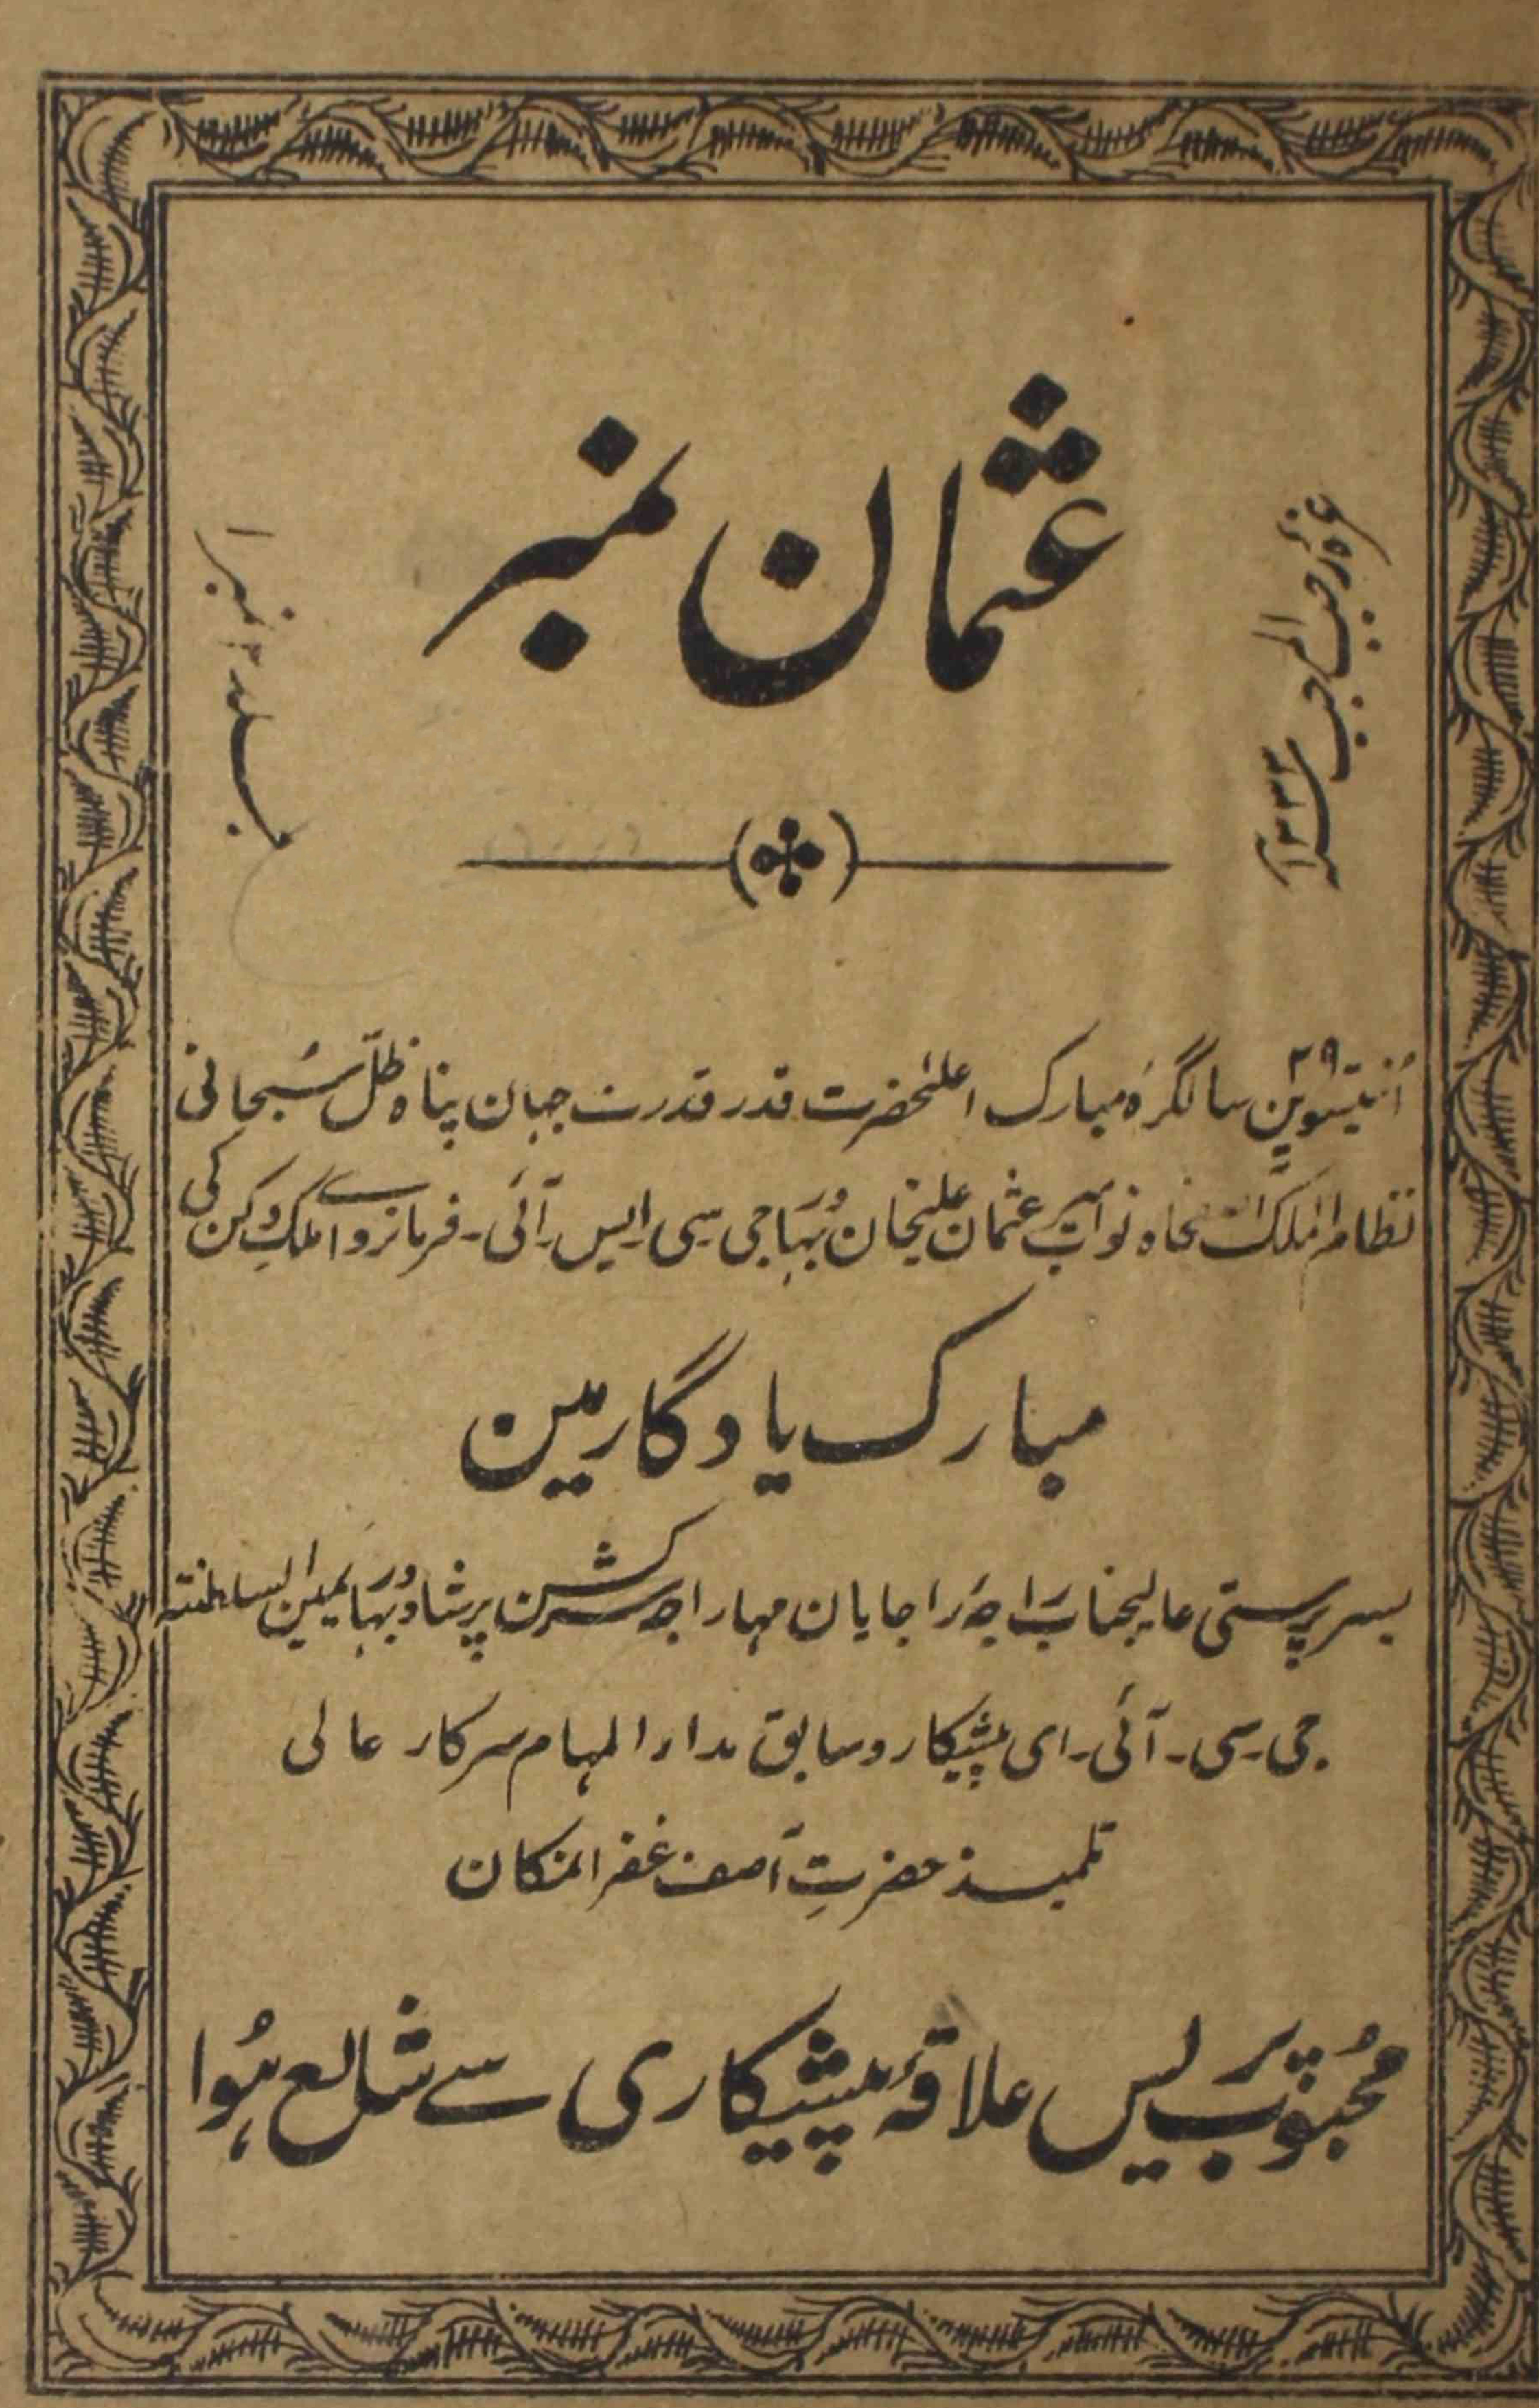 عثمان نمبر
غرۂ رجب المرجب سنہ ۱۳۳۳
جلد ۳ نمبر ۱
اُنتیسوین ۲۹ سالگرۂ مبارک اعلیٰحضرت قدر قدرت جہان پناہ ظلّ سُبحانی
نظام الملک آصفجاہ نواب میر عثمان علیخان بہادر جی سی ایس آئی ۔ فرمانروائے ملکِ دکن کی
مبارک یادگار مین
بسرپرستی عالیجناب راجۂ راجایان مہاراجہ سر کشن پرشاد بہادر یمین السلطنتہ
جی ۔ سی ۔ آئی ۔ ای پیشکار و سابق مدار المہام سرکار عالی
تلمیذ حضرتِ آصف غفرالمکان
محبُوب پریس علاقۂ پیشکاری سے شایع ہُوا